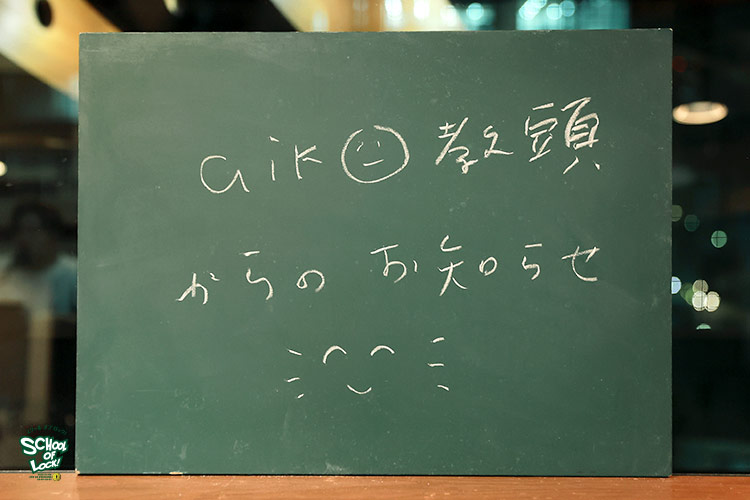 aiko教頭
からのお知らせ
SCHOOL
OF
LOCK!